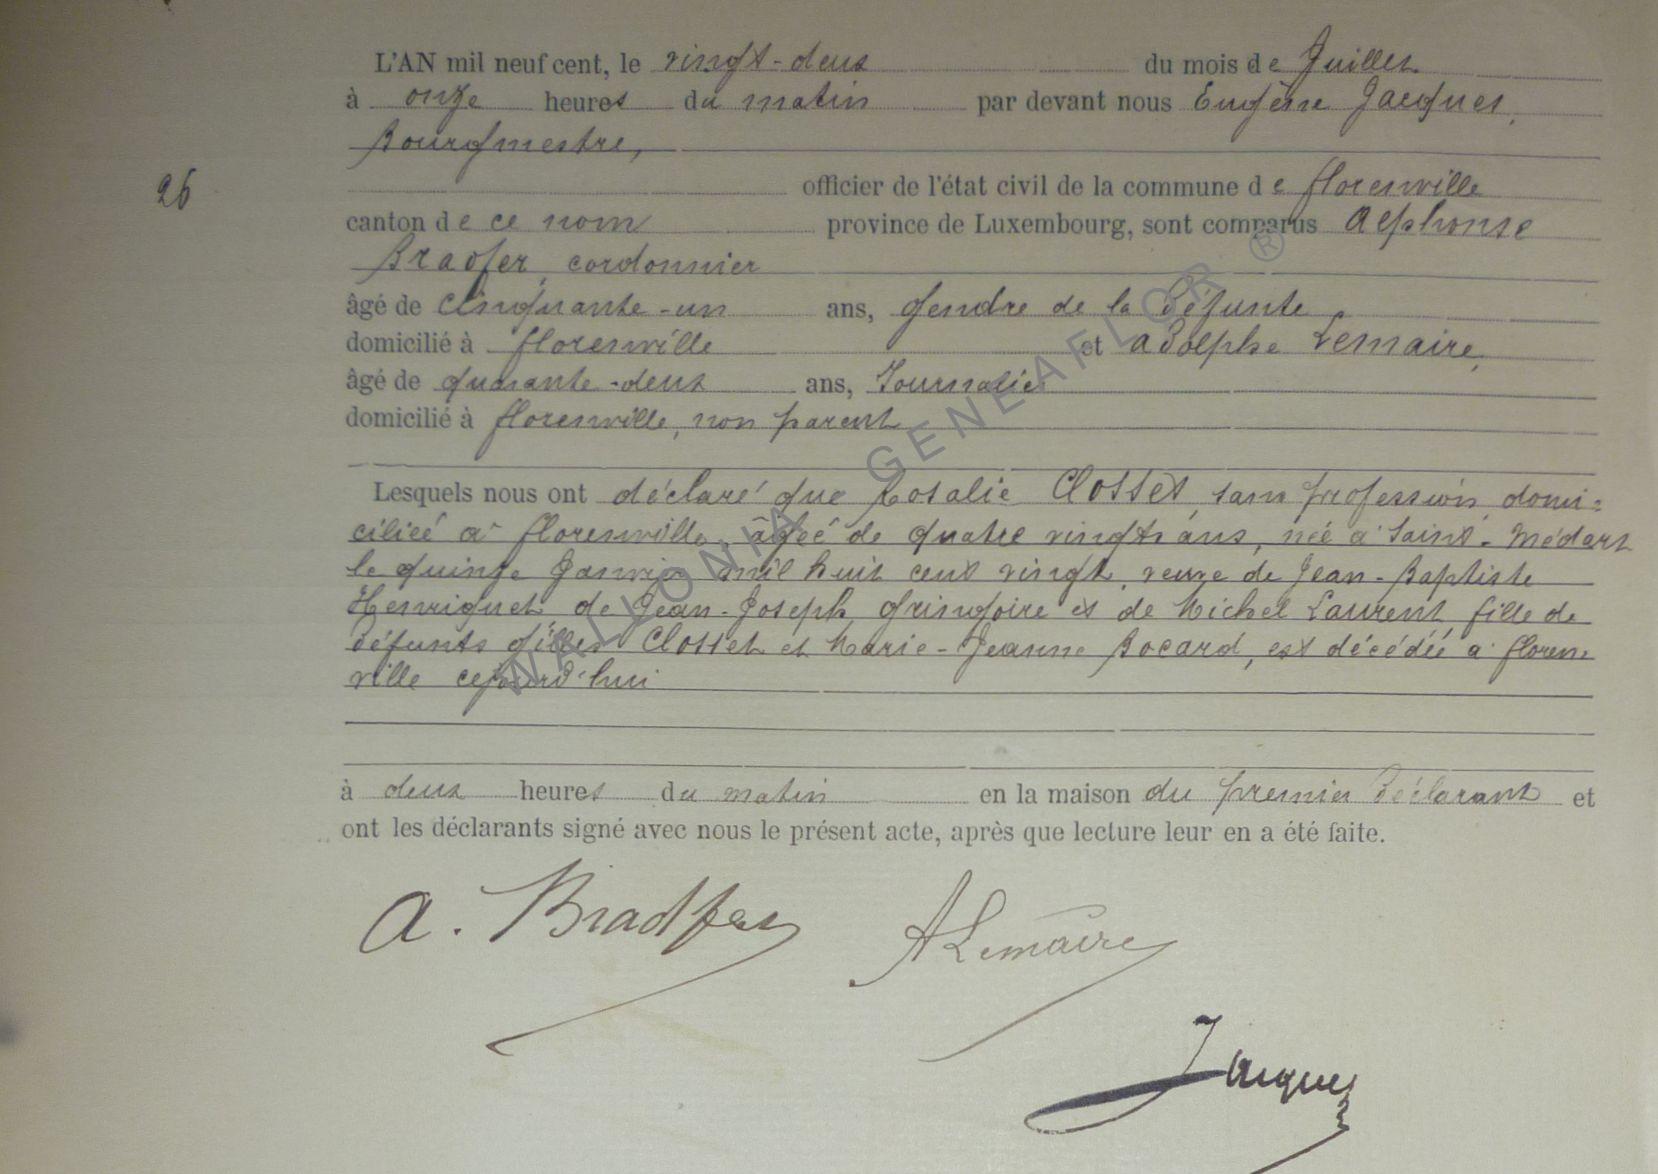 L'AN mil neuf cent, le vingt-deux du mois de Juillet
à onze heures du matin par devant nous Eugène Jacques,
Bourgmestre,
officier de l'état civil de la commune de florenville
26
canton de ce nom province de Luxembourg, sont comparus Alphonse
Bradfer, cordonnier
âgé de cinquante-un ans, gendre de la défunte
domicilié à florenville et Adolphe Lemaire,
âgé de quarante-deux ans, Journalier
domicilié à florenville, non parent
Lesquels nous ont déclaré que Rosalie Closset, sans profession, domi=
ciliée à florenville, âgée de quatre vingts ans, née à Saint-Médart
le quinze Janvier mil huit cent vingt, veuve de Jean-Baptiste
Henriquet de Jean-Joseph Gringoire et de Michel Laurent fille de
défunts Gilles Closset et Marie-Jeanne Bocard, est décédée à floren
ville cejourd'hui
à deux heures du matin en la maison du premier déclarant et
ont les déclarants signé avec nous le présent acte, après que lecture leur en a été faite.
A. Bradfer ALemaire
Jacques
WALLONIA GENEAFLOR ®